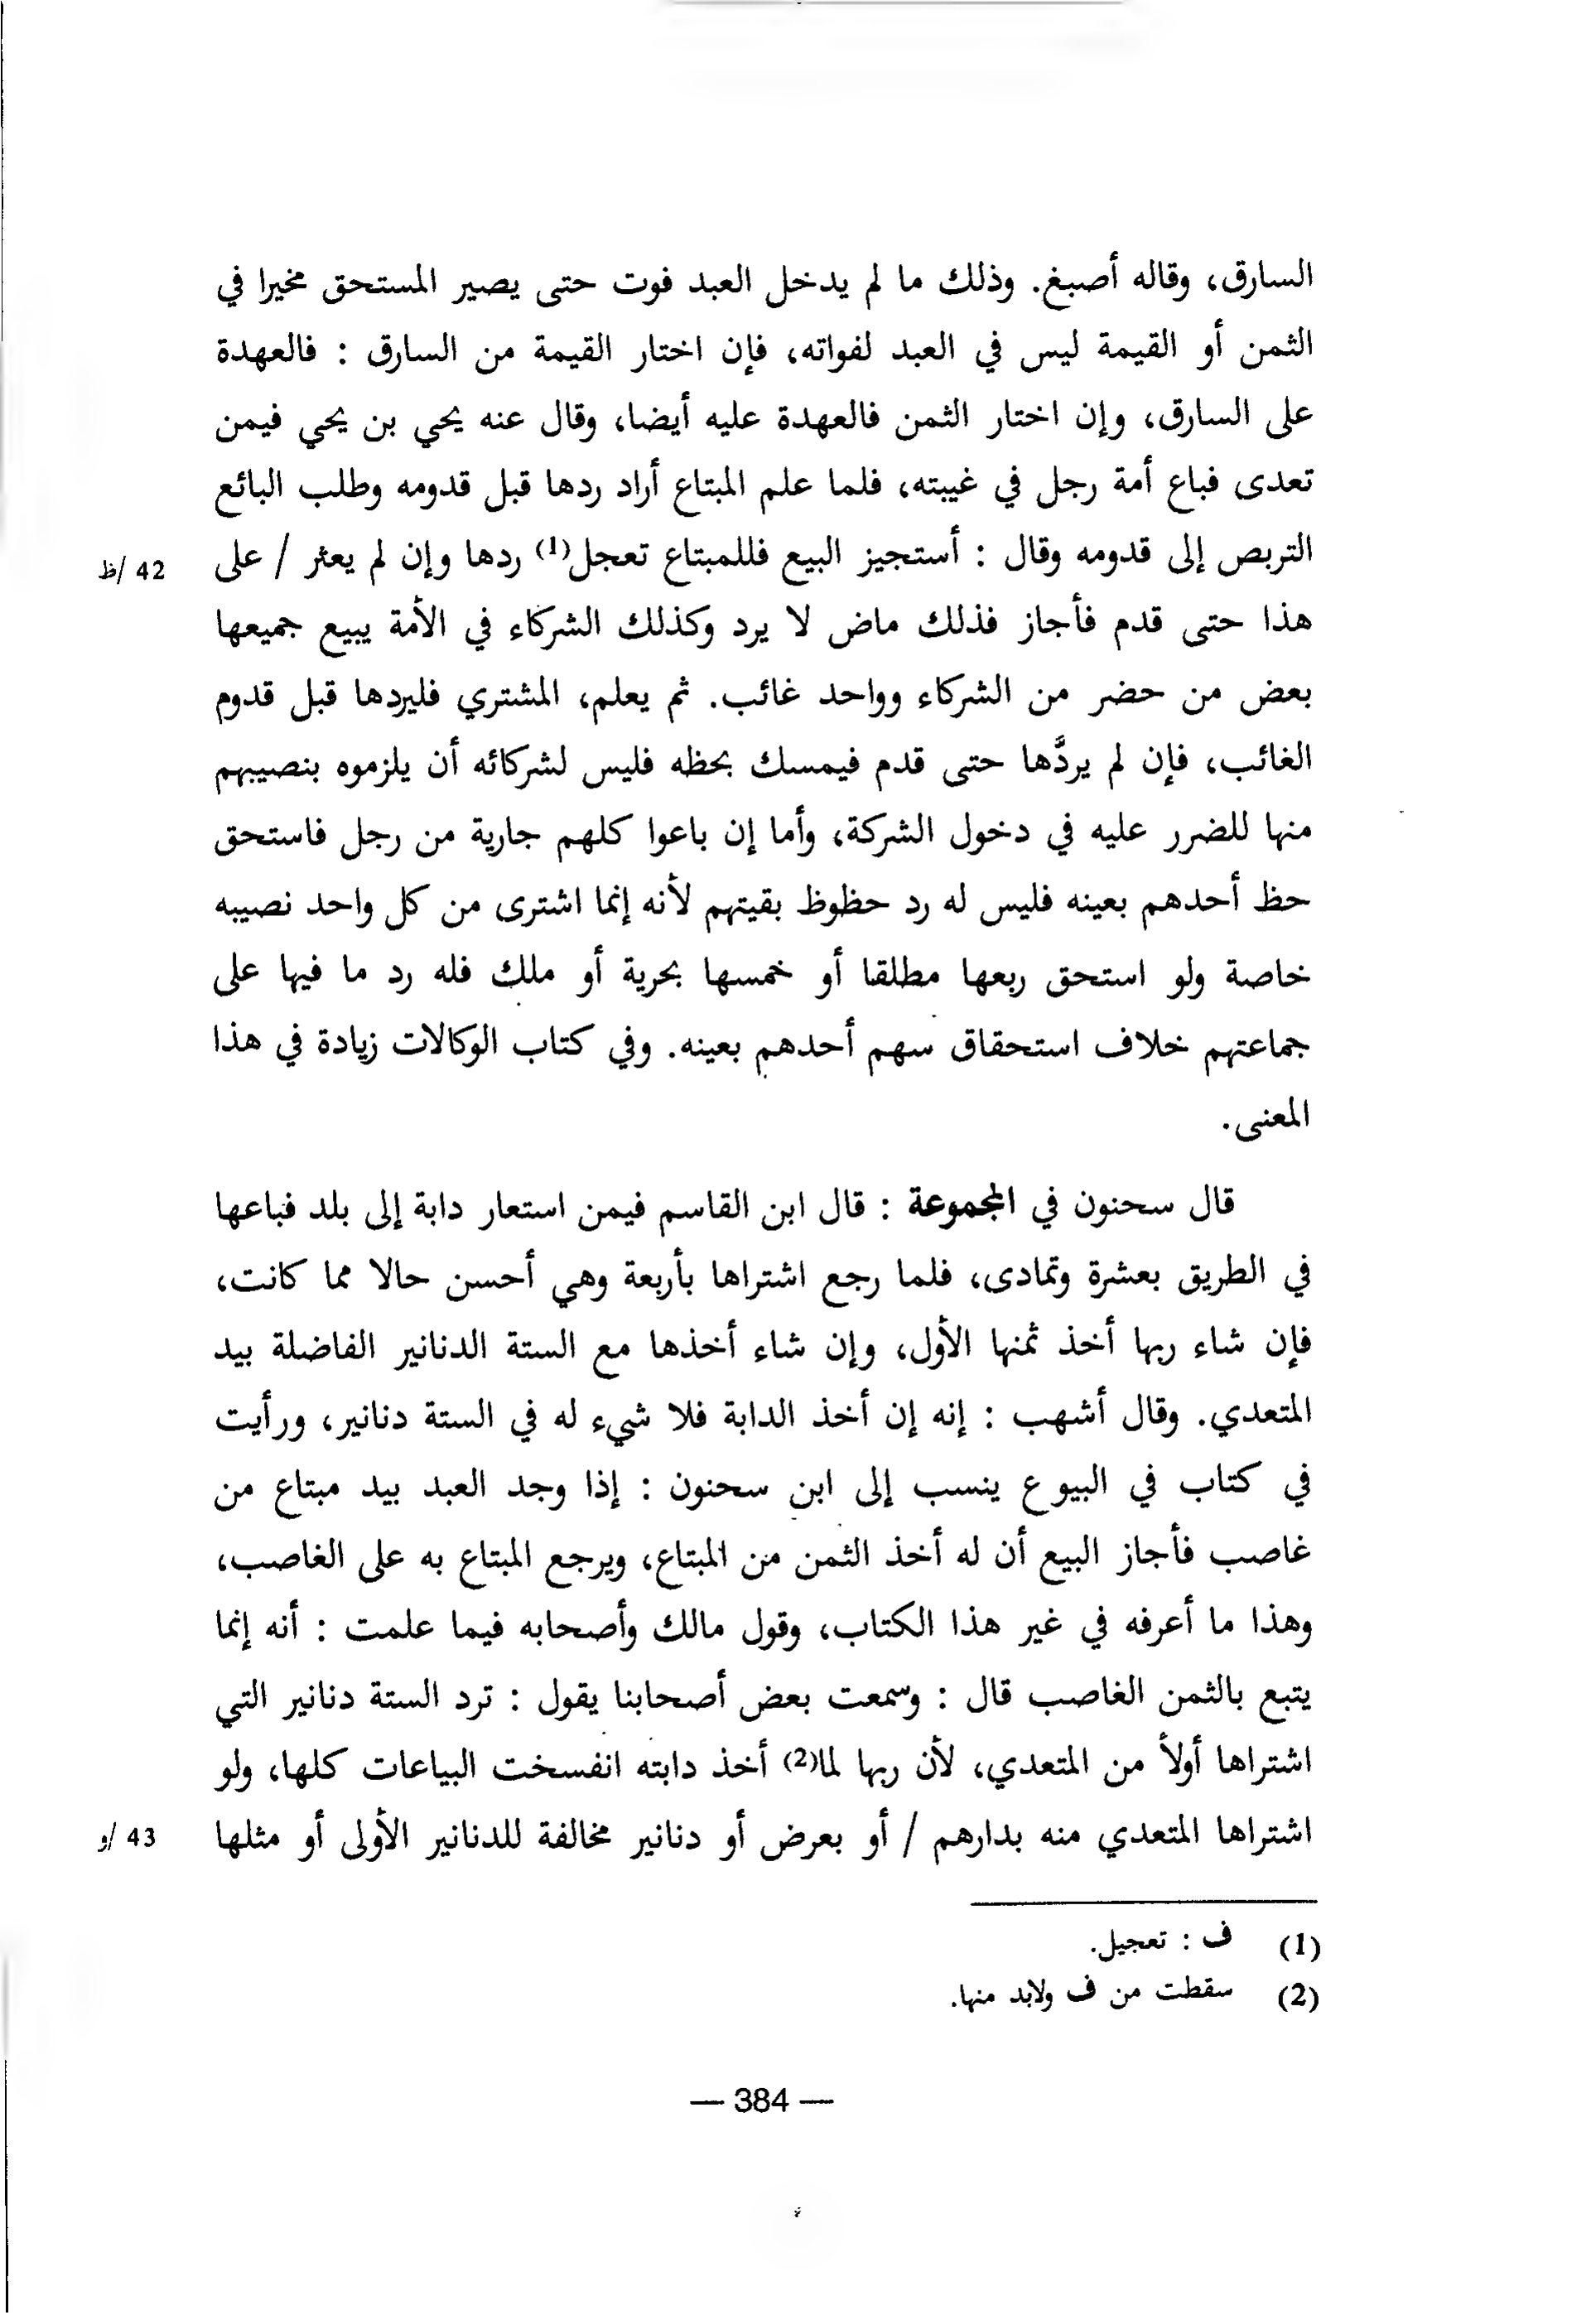 السارق، وقاله أصبغ. وذلك ما لم يدخل العبد فوت حتى يصير المستحق مخيرا في
الثمن أو القيمة ليس في العبد لفواته، فإن اختار القيمة من السارق : فالعهدة
على السارق، وإن اختار الثمن فالعهدة عليه أيضا، وقال عنه يحيي بن يحيي فيمن
تعدى فباع أمة رجل في غيبته، فلما علم المبتاع أراد ردها قبل قدومه وطلب البائع
التربص إلى قدومه وقال : أستجيز البيع فللمبتاع تعجل(1) ردها وإن لم يعثر / على
42 /ظ
هذا حتى قدم فأجاز فذلك ماض لا يرد وكذلك الشركاء في الأمة يبيع جميعها
بعض من حضر من الشركاء وواحد غائب. ثم يعلم، المشتري فليردها قبل قدوم
الغائب، فإن لم يردَّها حتى قدم فيمسك بحظه فليس لشركائه أن يلزموه بنصيبهم
منها للضرر عليه في دخول الشركة، وأما إن باعوا كلهم جارية من رجل فاستحق
حظ أحدهم بعينه فليس له رد حظوظ بقيتهم لأنه إنما اشترى من كل واحد نصيبه
خاصة ولو استحق ربعها مطلقا أو خمسها بحرية أو ملك فله رد ما فيها على
جماعتهم خلاف استحقاق سهم أحدهم بعينه. وفي كتاب الوكالات زيادة في هذا
المعنى.
قال سحنون في المجموعة : قال ابن القاسم فيمن استعار دابة إلى بلد فباعها
في الطريق بعشرة وتمادى، فلما رجع اشتراها بأربعة وهي أحسن حالا مما كانت،
فإن شاء ربها أخذ ثمنها الأول، وإن شاء أخذها مع الستة الدنانير الفاضلة بيد
المتعدي. وقال أشهب : إنه إن أخذ الدابة فلا شيء له في الستة دنانير، ورأيت
في كتاب في البيوع ينسب إلى ابن سحنون : إذا وجد العبد بيد مبتاع من
غاصب فأجاز البيع أن له أخذ الثمن من المبتاع، ويرجع المبتاع به على الغاصب،
وهذا ما أعرفه في غير هذا الكتاب، وقول مالك وأصحابه فيما علمت : أنه إنما
يتبع بالثمن الغاصب قال : وسمعت بعض أصحابنا يقول : ترد الستة دنانير التي
اشتراها أولاً من المتعدي، لأن ربها لما(2) أخذ دابته انفسخت البياعات كلها، ولو
اشتراها المتعدي منه بدارهم / أو بعرض أو دنانير مخالفة للدنانير الأولى أو مثلها
43 /و
(1) ف : تعجيل.
(2) سقطت من ف ولابد منها.
— 384 —